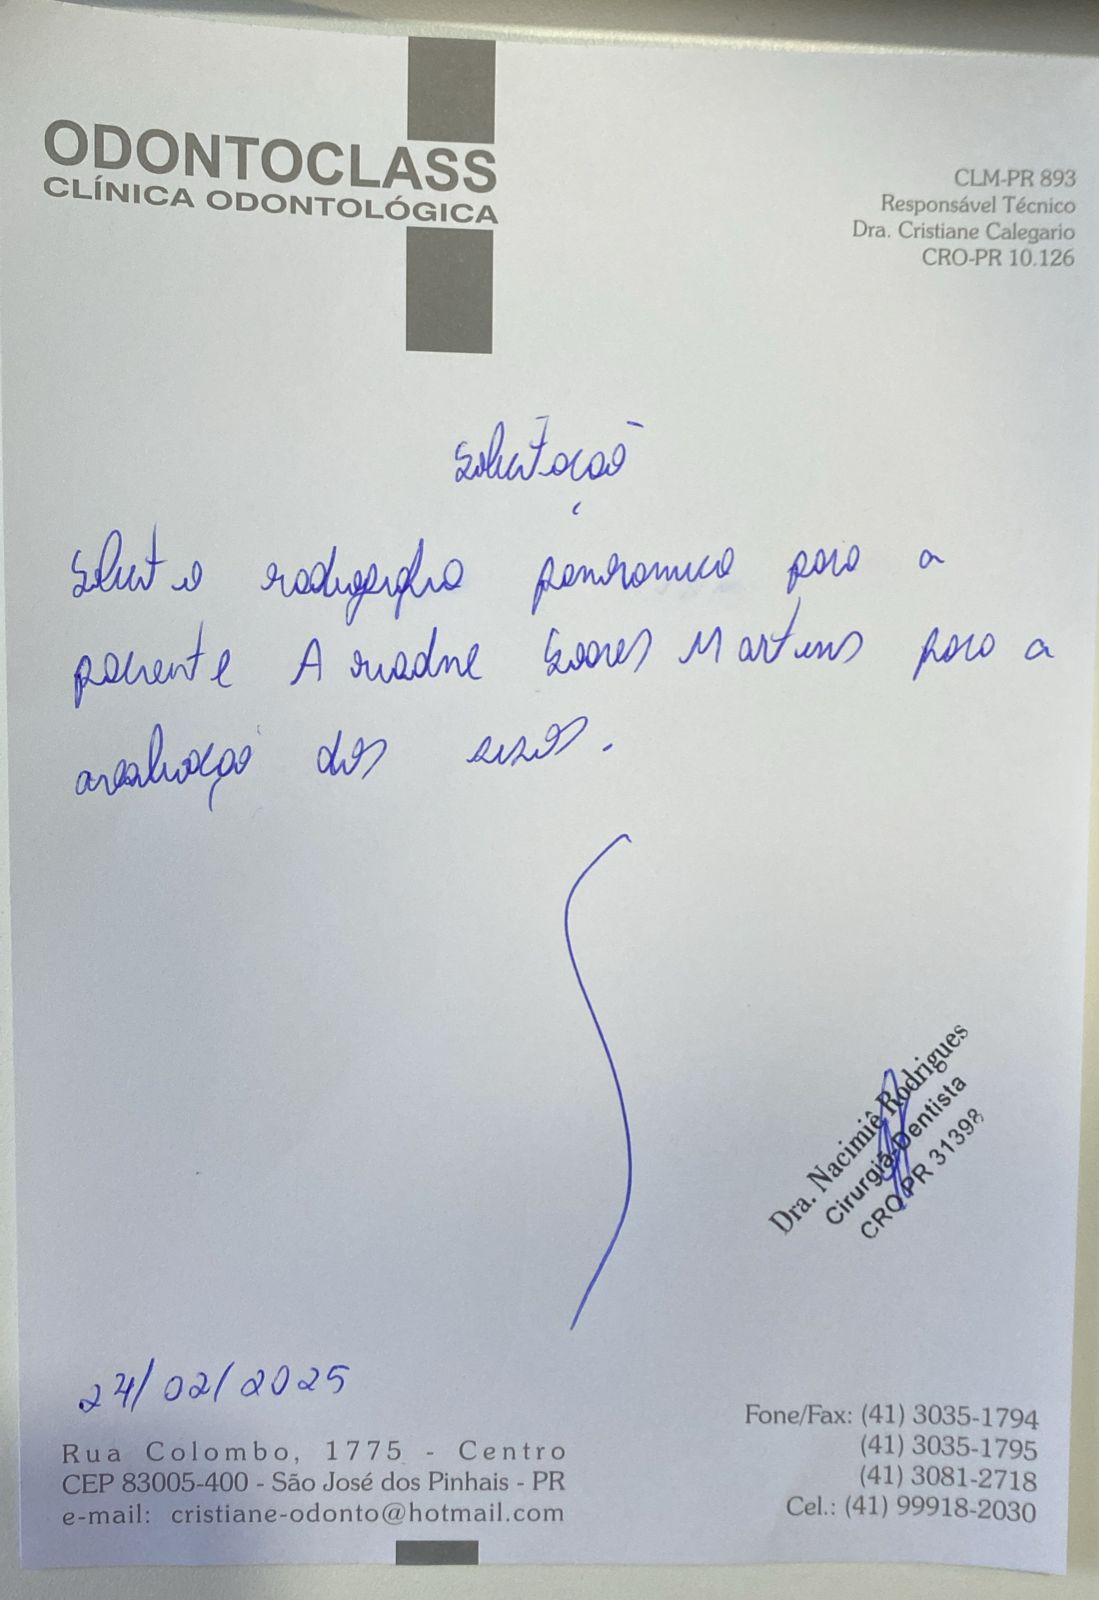 ODONTOCLASS
CLÍNICA ODONTOLÓGICA
CLM-PR 893
Responsável Técnico
Dra. Cristiane Calegario
CRO-PR 10.126
Solicitação
Solicito radiografia panorâmica para a
paciente Ariadne Soares Martins para a
avaliação dos sisos.
Dra. Nacimiê Rodrigues
Cirurgiã-Dentista
CRO-PR 31398
24/02/2025
Rua Colombo, 1775 - Centro
CEP 83005-400 - São José dos Pinhais - PR
e-mail: cristiane-odonto@hotmail.com
Fone/Fax: (41) 3035-1794
(41) 3035-1795
(41) 3081-2718
Cel.: (41) 99918-2030